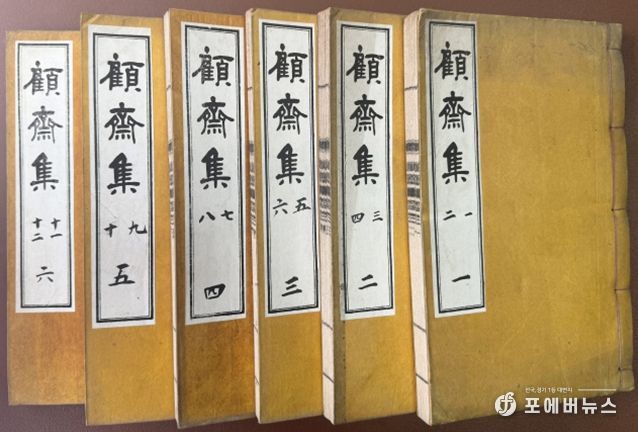 顧齋集
一 二
一
顧齋集
三 四
二
顧齋集
五 六
三
顧齋集
七 八
四
顧齋集
九 十
五
顧齋集
十一 十二
六
포에버뉴스